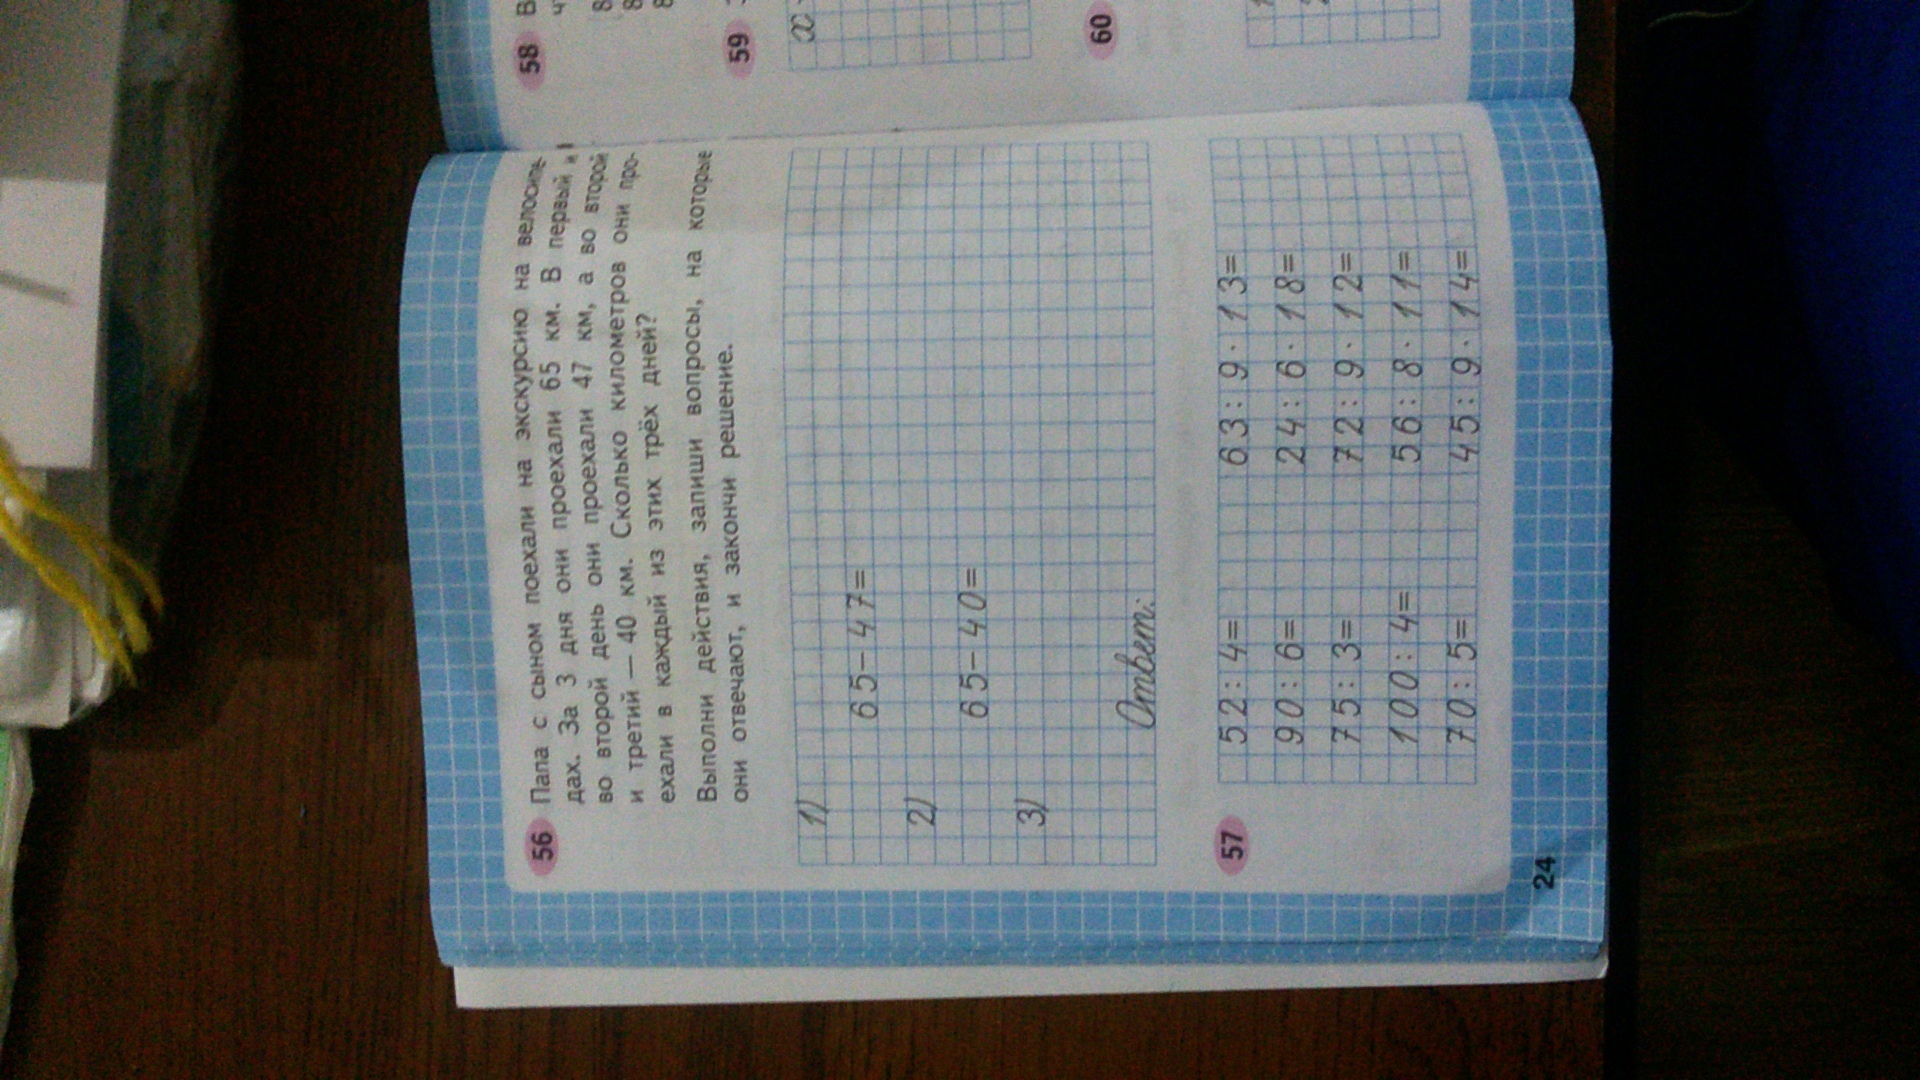 56 Папа с сыном поехали на экскурсию на велосипе-
дах. За 3 дня они проехали 65 км. В первый и
во второй день они проехали 47 км, а во второй
и третий — 40 км. Сколько километров они про-
ехали в каждый из этих трёх дней?
Выполни действия, запиши вопросы, на которые
они отвечают, и закончи решение.
1)
65-47=
2)
65-40=
3)
Ответ:
57 52:4= 63:9·13=
90:6= 24:6·18=
75:3= 72:9·12=
100:4= 56:8·11=
70:5= 45:9·14=
24
58 В
59
x
60